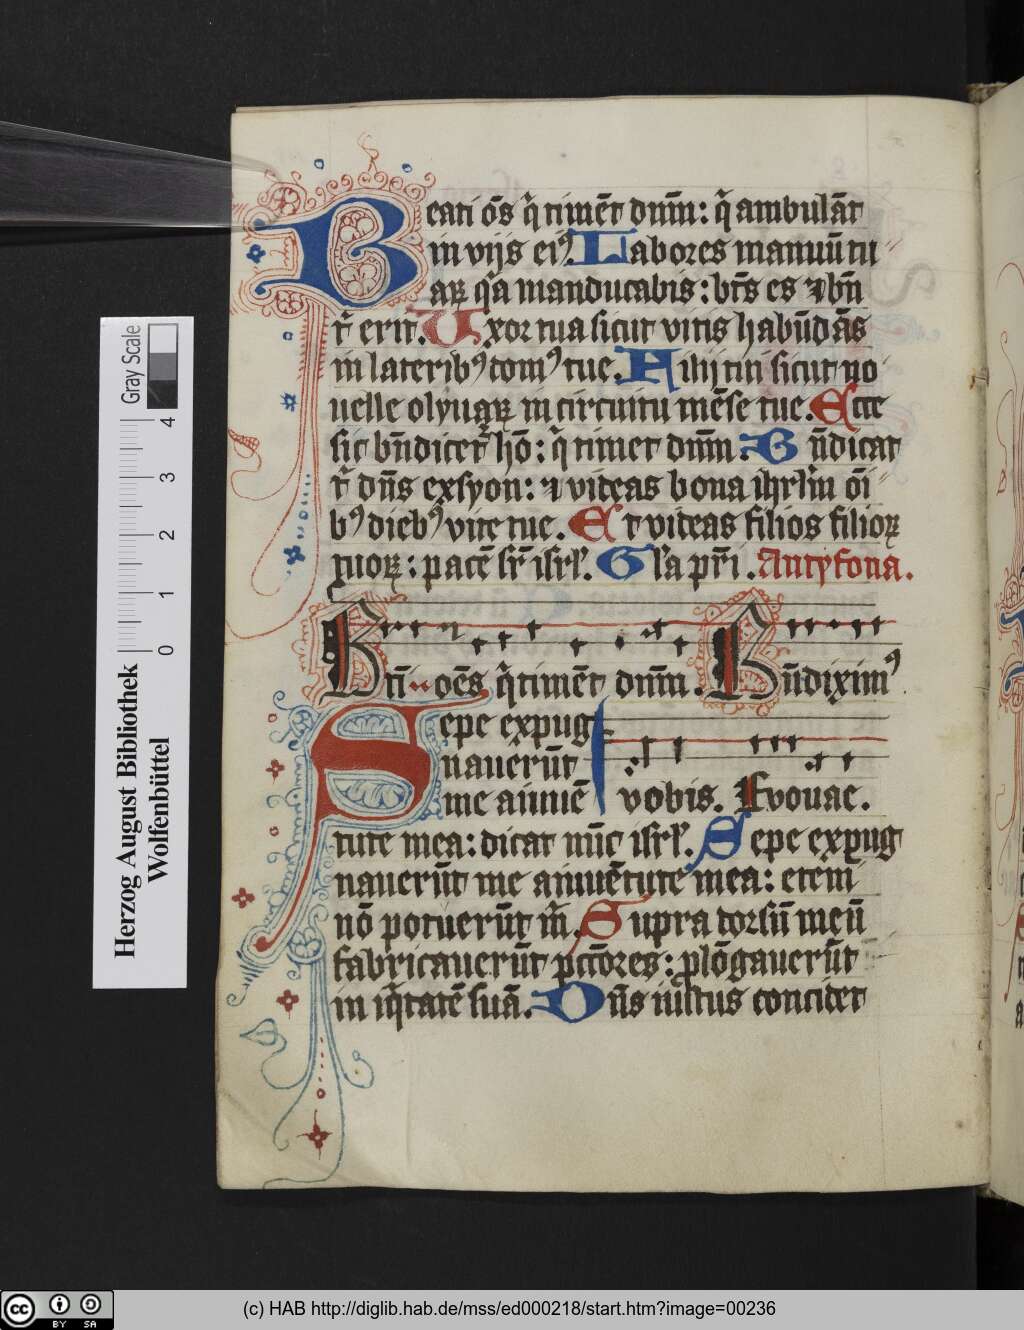 Beati o̅s q̅ time̅t dn̅m: q̅ ambula̅t
in vijs eiꝰ. Labores manuu̅ tu
aꝝ q̅a manducabis: bt̅s es ⁊ bn̅
t̅ erit. Uxor tua sicut vitis habu̅da̅s
in lateribꝰ domꝰ tue. Filij tui sicut no
uelle olyuaꝝ in circuitu me̅se tue. Ecce
sic bn̅dicet̅ ho̅: q̅ timet dn̅m. Bn̅dicat
t̅ dn̅s ex syon: ⁊ videas bona ihrl̅m o̅i
bꝰ diebꝰ vite tue. Et videas filios filioꝝ
tuoꝝ: pace̅ sr̅ isrl̓. Gl̅a pr̅i. Antyfona.
Bn̅ oe̅s q̅ time̅t dn̅m. Bn̅diximꝰ
Sepe expug
nauerūt
me a iuue̅ vobis. Evouae.
tute mea: dicat nu̅c isrl̓. Sepe expug
naueru̅t me a iuue̅tute mea: eteni
no̅ potueru̅t m̅. Supra dorsu̅ meu̅
fabricaueru̅t pcc̅ores: plo̅gaueru̅t
in iq̅tate̅ sua̅. Dn̅s iustus concidet
Gray Scale
0 1 2 3 4
Herzog August Bibliothek
Wolfenbüttel
cc BY SA
(c) HAB http://diglib.hab.de/mss/ed000218/start.htm?image=00236